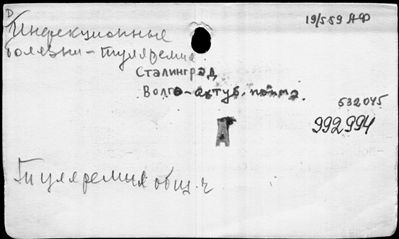 19/559 АФ
Инфекционные
болезни - туляремия.
Сталинград
Волго-ахтуб. пойма.
532045
992994
Д
Туляремия общ. ч